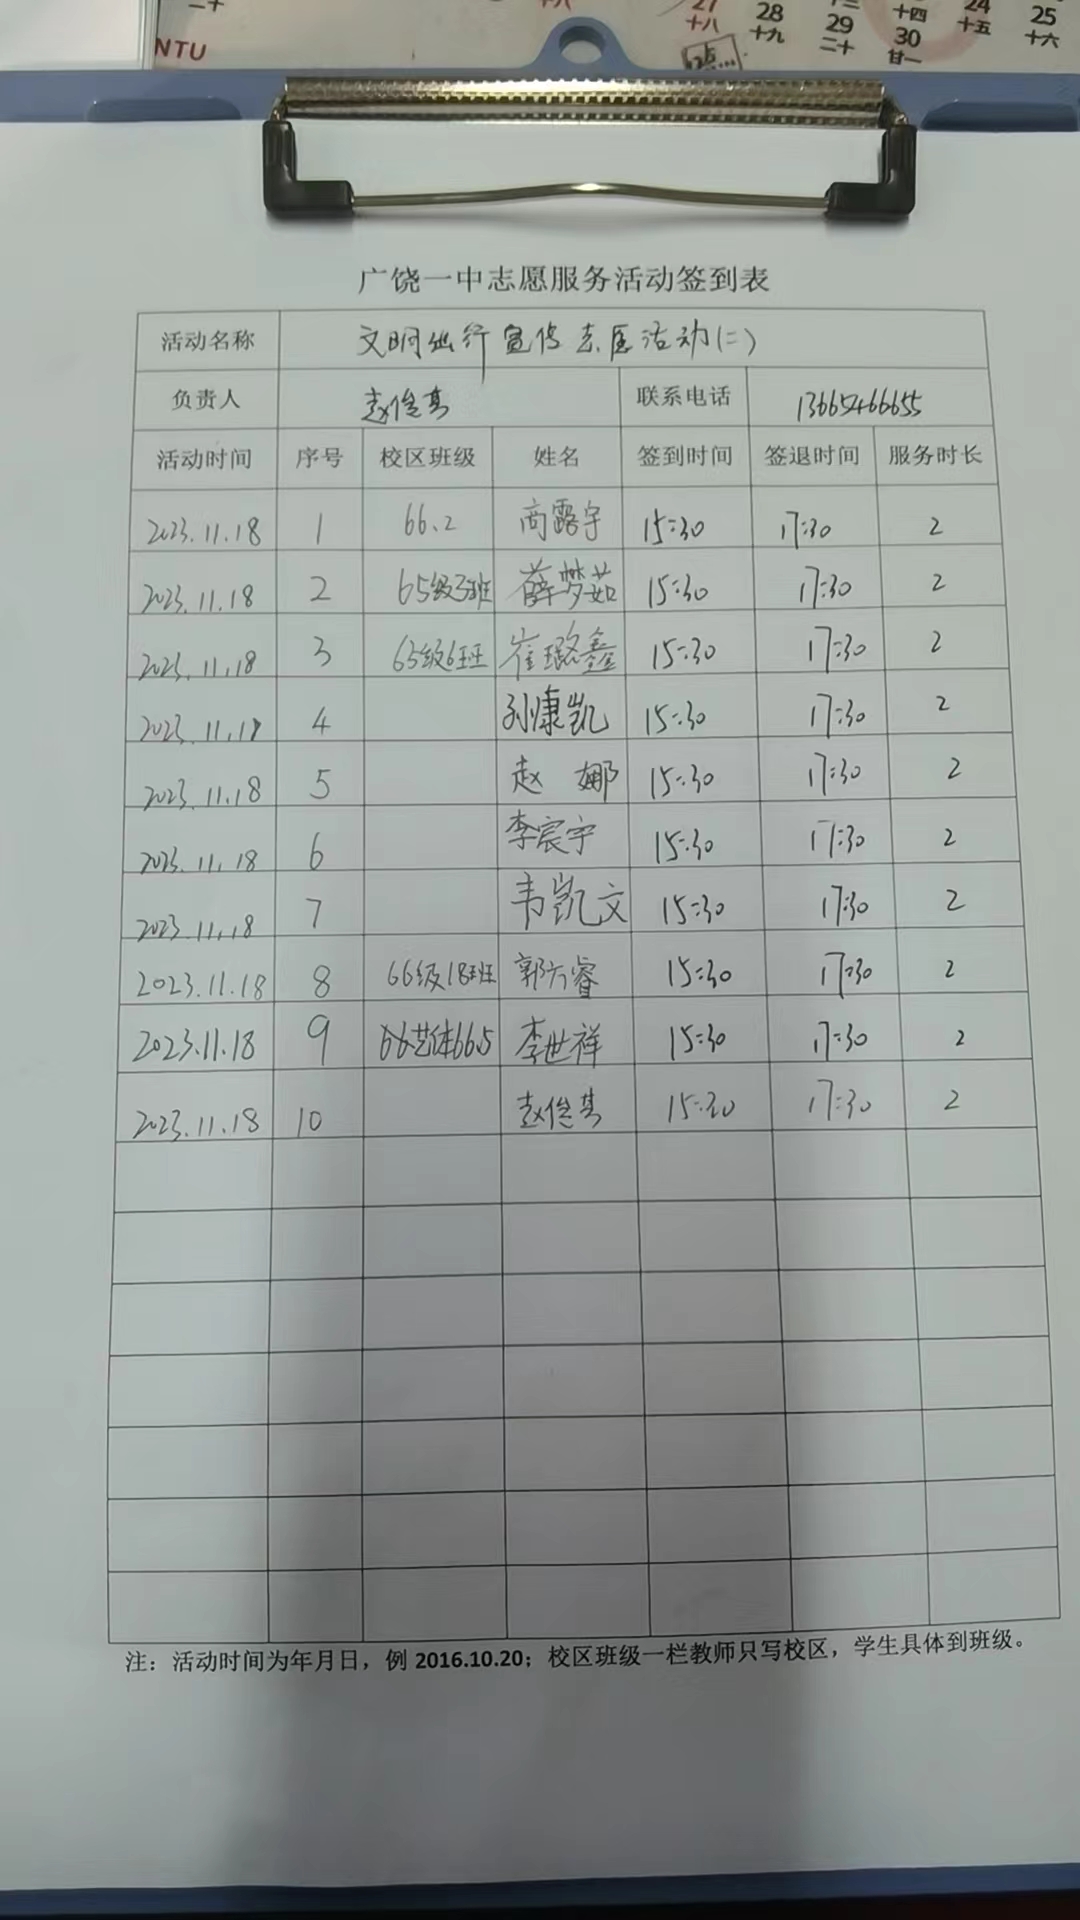 二十
十八
27
十八
28
十九
29
二十
十四
30
廿一
24
十五
25
十六
NTU
广饶一中志愿服务活动签到表
活动名称 文明出行宣传志愿活动(二)
负责人 赵俊其 联系电话 13665466655
活动时间 序号 校区班级 姓名 签到时间 签退时间 服务时长
2023.11.18 1 66.2 商露宇 15:30 17:30 2
2023.11.18 2 65级3班 薛梦茹 15:30 17:30 2
2023.11.18 3 65级6班 崔璐鑫 15:30 17:30 2
2023.11.18 4 孙康凯 15:30 17:30 2
2023.11.18 5 赵娜 15:30 17:30 2
2023.11.18 6 李宸宇 15:30 17:30 2
2023.11.18 7 韦凯文 15:30 17:30 2
2023.11.18 8 66级18班 郭方睿 15:30 17:30 2
2023.11.18 9 66艺体66.5 李世祥 15:30 17:30 2
2023.11.18 10 赵俊其 15:30 17:30 2
注：活动时间为年月日，例 2016.10.20；校区班级一栏教师只写校区，学生具体到班级。